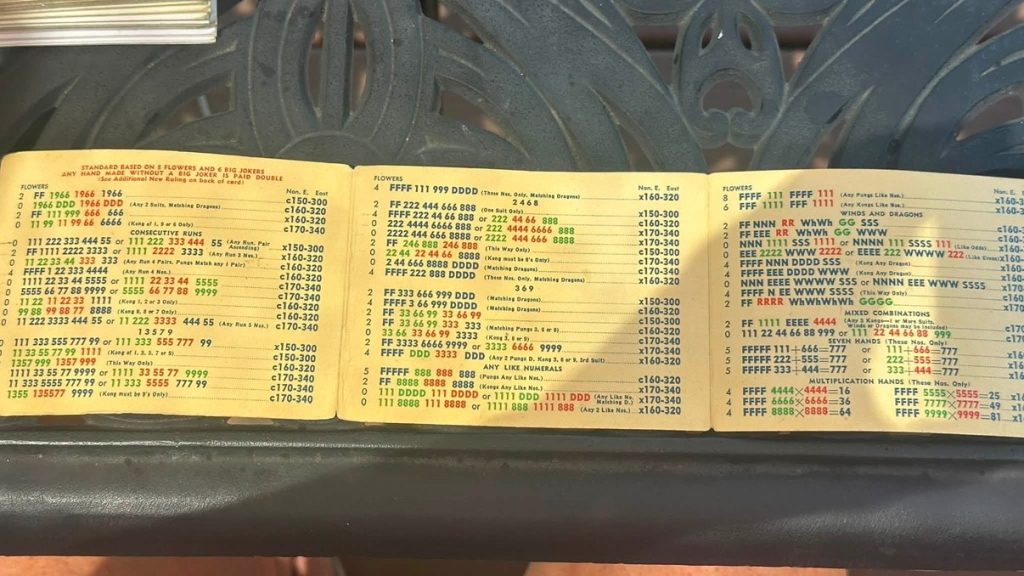 STANDARD BASED ON 8 FLOWERS AND 6 BIG JOKERS
ANY HAND MADE WITHOUT A BIG JOKER IS PAID DOUBLE
(See Additional New Ruling on back of card)
FLOWERS Non. E. East
2 FF 1966 1966 1966
0 1966 DDD 1966 DDD (Any 2 Suits, Matching Dragons) c150-300
2 FF 111 999 666 666 x160-320
0 11 99 11 99 66 6666 (Kong of 1, 9 or 6 Only) c160-320
CONSECUTIVE RUNS
0 111 222 333 444 55 or 111 222 333 444 55 (Any Run, Pair Ascending) x150-300
2 FF 1111 2222 3333 or 1111 2222 3333 (Any Run 3 Nos.) x160-320
0 11 22 33 44 333 333 (Any Run 4 Pairs, Pungs Match any 1 Pair) c160-320
4 FFFF 1 22 333 4444 (Any Run 4 Nos.)
0 11 22 33 44 5555 or 11 22 33 44 5555
0 5555 66 77 88 9999 or 5555 66 77 88 9999
0 11 22 11 22 33 1111 (Kong 1, 2 or 3 Only)
0 99 88 99 88 77 8888 (Kong 9, 8 or 7 Only)
0 11 222 3333 444 55 or 11 222 3333 444 55 (Any Run 5 Nos.) c170-340
13579
0 111 333 555 777 99 or 111 333 555 777 99 x150-300
0 11 33 55 77 99 1111 (Kong of 1, 3, 5, 7 or 9) c150-300
1357 999 1357 999 (This Way Only) c170-340
11 33 55 77 9999 or 11 33 55 77 9999 c170-340
11 333 5555 777 99 or 11 333 5555 777 99 c170-340
1355 135577 9999 (Kong must be 9's Only) c170-340
FLOWERS Non. E. East
4 FFFF 111 999 DDDD (These Nos. Only, Matching Dragons) x160-320
2468
2 FF 222 444 666 888 (One Suit Only)
4 FFFF 22 44 66 88 or 222 44 66 888
0 222 4444 6666 888 or 222 4444 6666 888
0 2222 444 666 8888 or 2222 444 666 8888
2 FF 246 888 246 888 (This Way Only)
0 22 44 22 44 66 8888 (Kong must be 8's Only)
0 2 44 666 8888 DDDD (Matching Dragons)
4 FFFF 222 888 DDD (These Nos. Only, Matching Dragons) x160-320
369
2 FF 333 666 999 DDD (Matching Dragons) x150-300
4 FFFF 3 66 999 DDDD (Matching Dragons) x160-320
2 FF 33 66 99 33 66 99
2 FF 33 66 99 333 333 (Matching Pungs 3, 6 or 9)
0 33 66 33 66 99 3333 (Kong 3, 6 or 9)
2 FF 3333 6666 9999 or 3333 6666 9999
4 FFFF DDD 3333 DDD (Any 2 Pungs D. Kong 3, 6 or 9, 3rd Suit) x160-320
ANY LIKE NUMERALS
5 FFFFF 888 888 888 (Pungs Any Like Nos.) x160-320
2 FF 8888 8888 8888 (Kongs Any Like Nos.) x170-340
0 111 DDDD 111 DDDD or 1111 DDD 1111 DDD (Any Like No. Matching D.) x170-340
0 111 8888 111 8888 or 1111 888 1111 888 (Any 2 Like Nos.) x160-320
FLOWERS Non. E.
8 FFFF 111 FFFF 111 (Any Pungs Like Nos.)
6 FFF 1111 FFF 1111 (Any Kongs Like Nos.)
WINDS AND DRAGONS
2 FF NNN RR WhWh GG SSS
2 FF EEE RR WhWh GG WWW
0 NNN 1111 SSS 1111 or NNNN 111 SSSS 111 (Like Odds)
0 EEE 2222 WWW 2222 or EEEE 222 WWWW 222 (Like Evens)
4 FFFF NNN DDDD SSS (Kong Any Dragon)
4 FFFF EEE DDDD WWW (Kong Any Dragon)
0 NNN EEEE WWWW SSS or NNNN EEE WWW SSSS
4 FFFF N EE WWW SSSS (This Way Only)
2 FF RRRR WhWhWhWh GGGG
MIXED COMBINATIONS
2 FF 1111 EEEE 4444 (Any 3 Kongs—1 or More Suits, Winds or Dragons may be included)
0 111 22 44 66 88 999 or 111 22 44 66 88 999
SEVEN HANDS (These Nos. Only)
5 FFFFF 111+666=777 or 111+666=777
5 FFFFF 222+555=777 or 222+555=777
5 FFFFF 333+444=777 or 333+444=777
MULTIPLICATION HANDS (These Nos. Only)
4 FFFF 4444×4444=16 FFFF 5555×5555=25
4 FFFF 6666×6666=36 FFFF 7777×7777=49
4 FFFF 8888×8888=64 FFFF 9999×9999=81